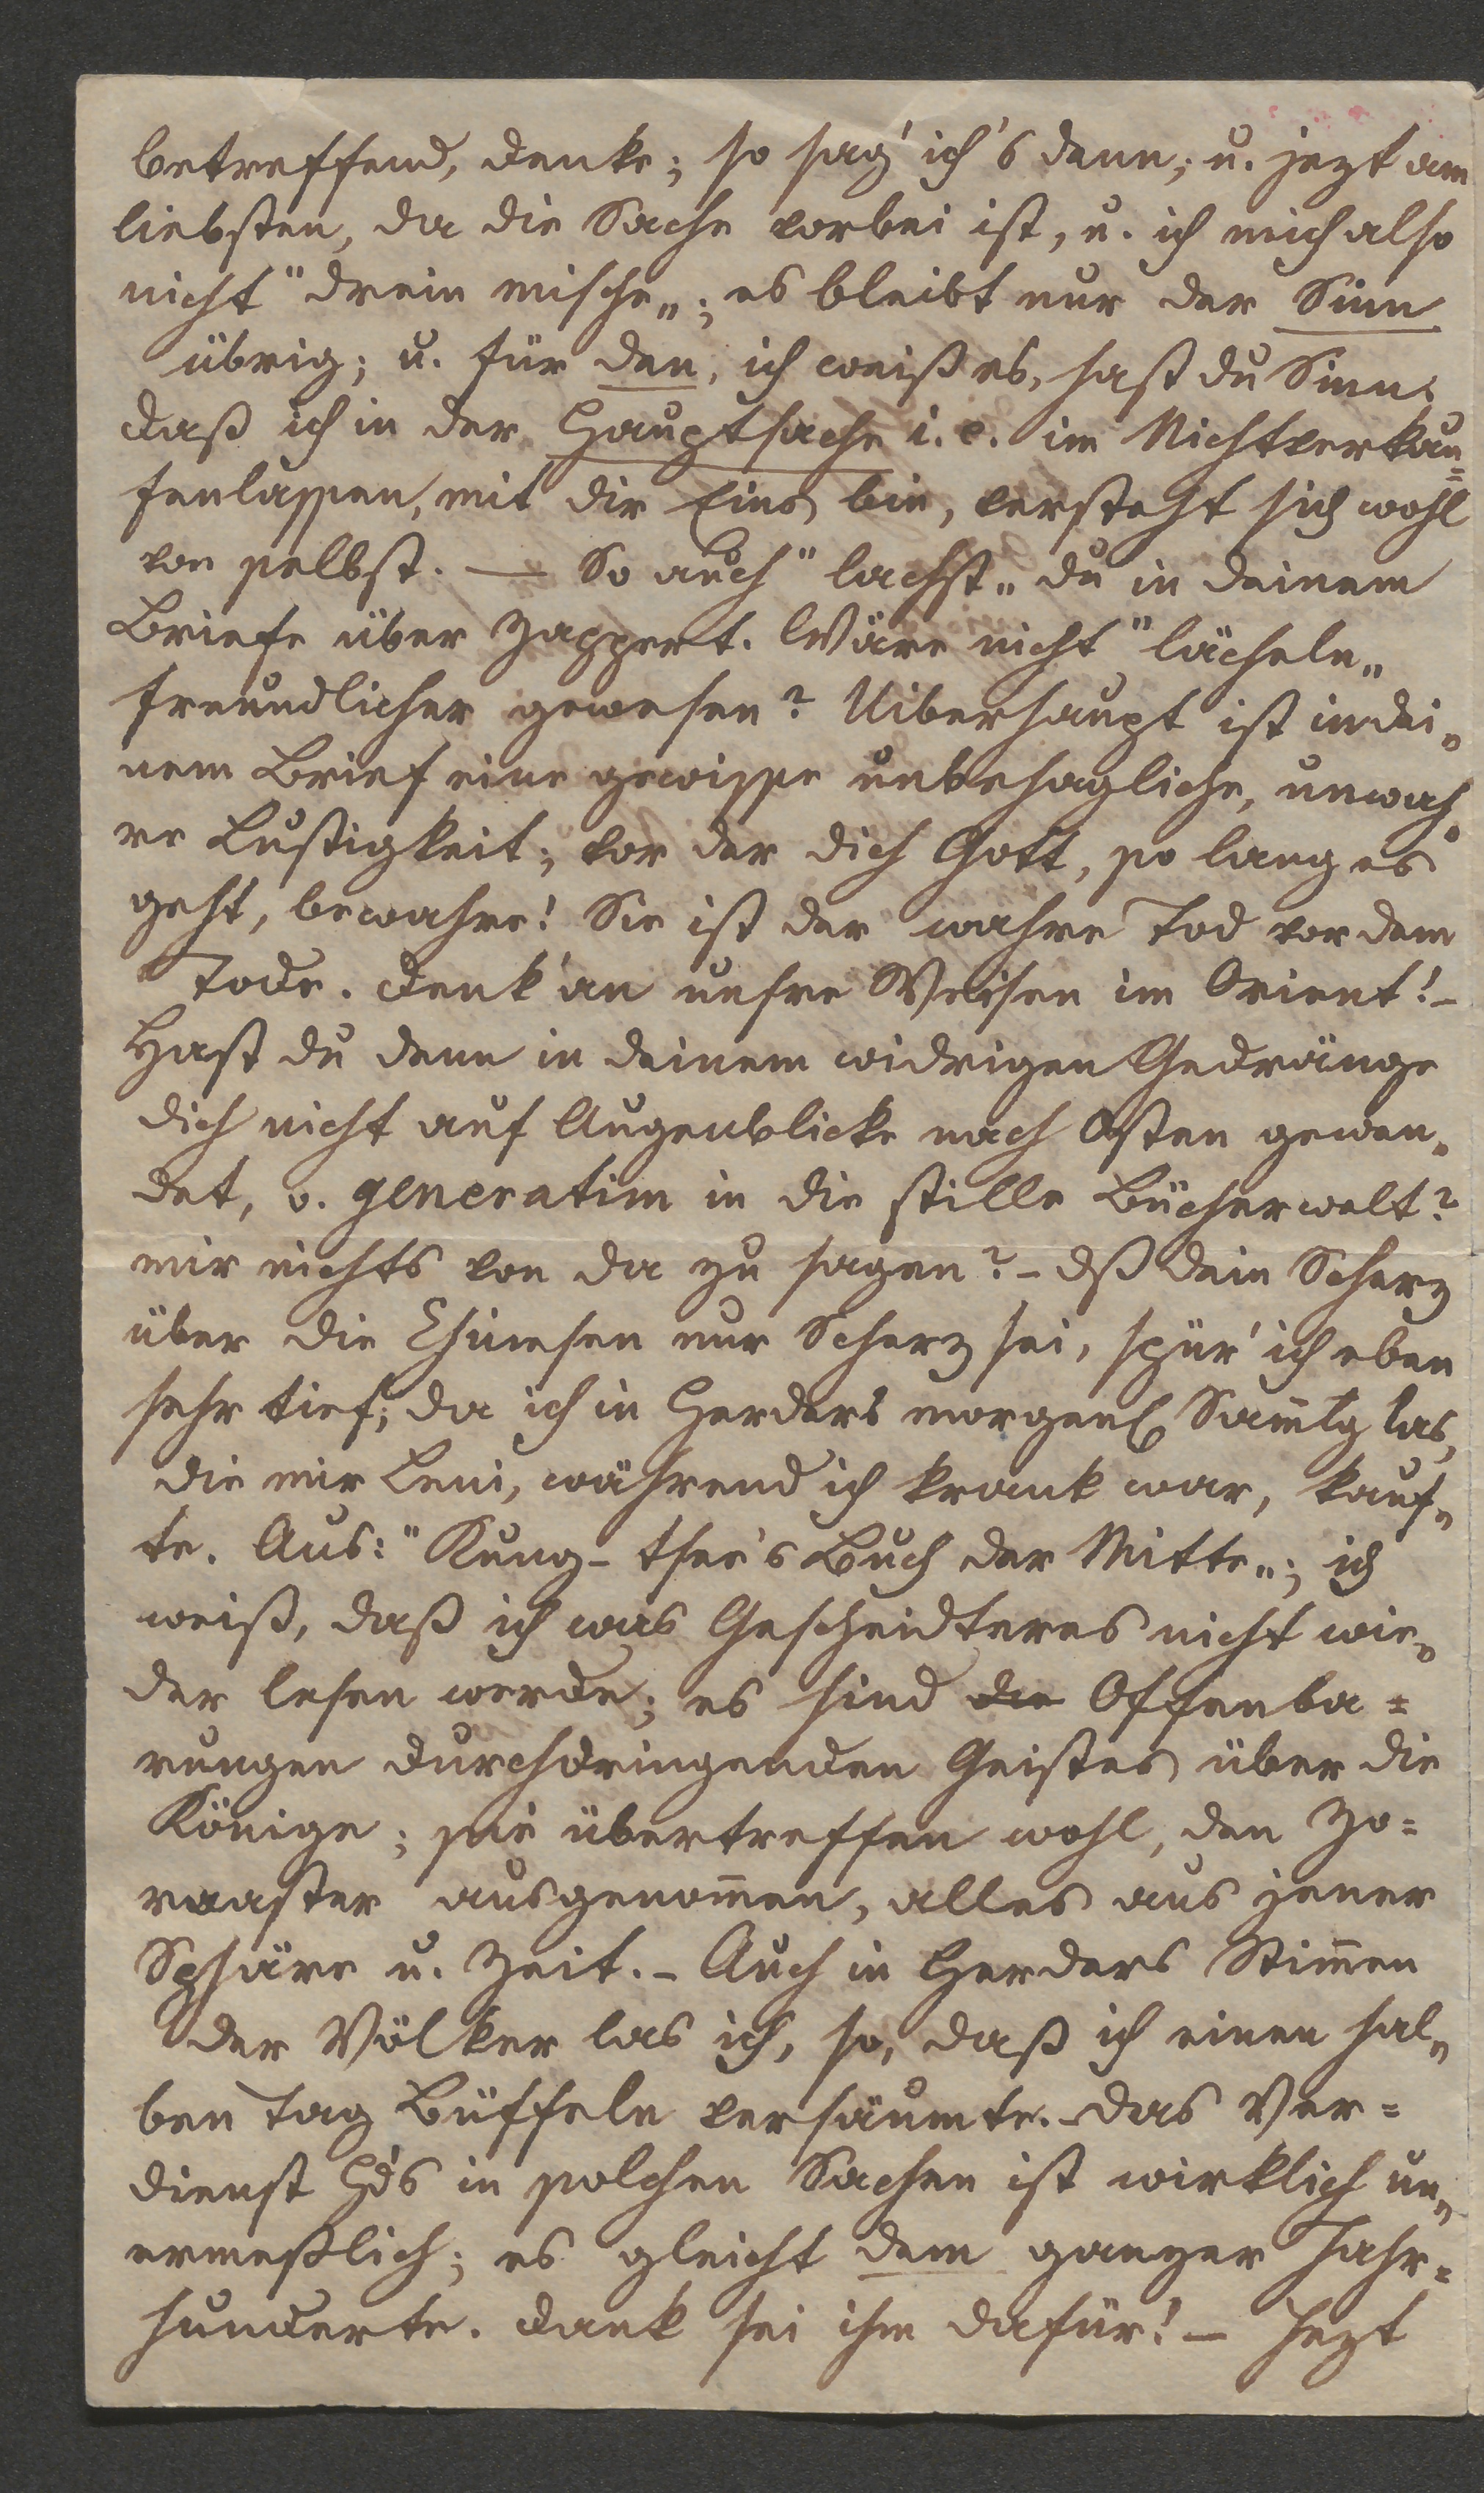 betreffend, denke; so sag' ich's denn; u. jezt am
liebsten, da die Sache vorbei ist, u. ich mich also
nicht "drein mische„; es bleibt nur der Sinn
übrig; u. für den, ich weiß es, hast du Sinn.
Daß ich in der Hauptsache i. e. im Nichtverkau=
fenlassen, mit dir Eins bin, versteht sich wohl
von selbst. — So auch "lachst„ du in deinem
Briefe über Zappert. Wäre nicht "lächeln„
freundlicher gewesen? Uiberhaupt ist in dei„
nem Brief eine gewisse unbehagliche, unwah„
re Lustigkeit; vor der dich Gott, so lang es
geht, bewahre! Sie ist der wahre Tod vor dem
Tode. Denk' an unsre Weisen im Orient! –
Hast du denn in deinem widrigen Gedränge
dich nicht auf Augenblicke nach Osten gewen„
det, o. generatim in die stille Bücherwelt?
mir nichts von da zu sagen? – Dß dein Scherz
über die Chinesen nur Scherz sei, spür' ich eben
sehr tief; da ich in Herders morgenl Sam̅lg las,
die mir Leni, während ich krank war, kauf„
te. Aus: "Kung-tsee's Buch der Mitte„; ich
weiß, daß ich was Gescheidteres nicht wie„
der lesen werde; es sind die Offenba=
rungen durchdringenden Geistes über die
Könige; sie übertreffen wohl, den Zo=
roaster ausgenom̅en, alles aus jener
Sphäre u. Zeit. – Auch in Herders Stim̅en
der Völker las ich, so, daß ich einen hal„
ben Tag Büffeln versäumte. Das Ver=
dienst Hd's in solchen Sachen ist wirklich un„
ermeßlich; es gleicht dem ganzer Jahr=
hunderte. Dank sei ihm dafür! — Jezt